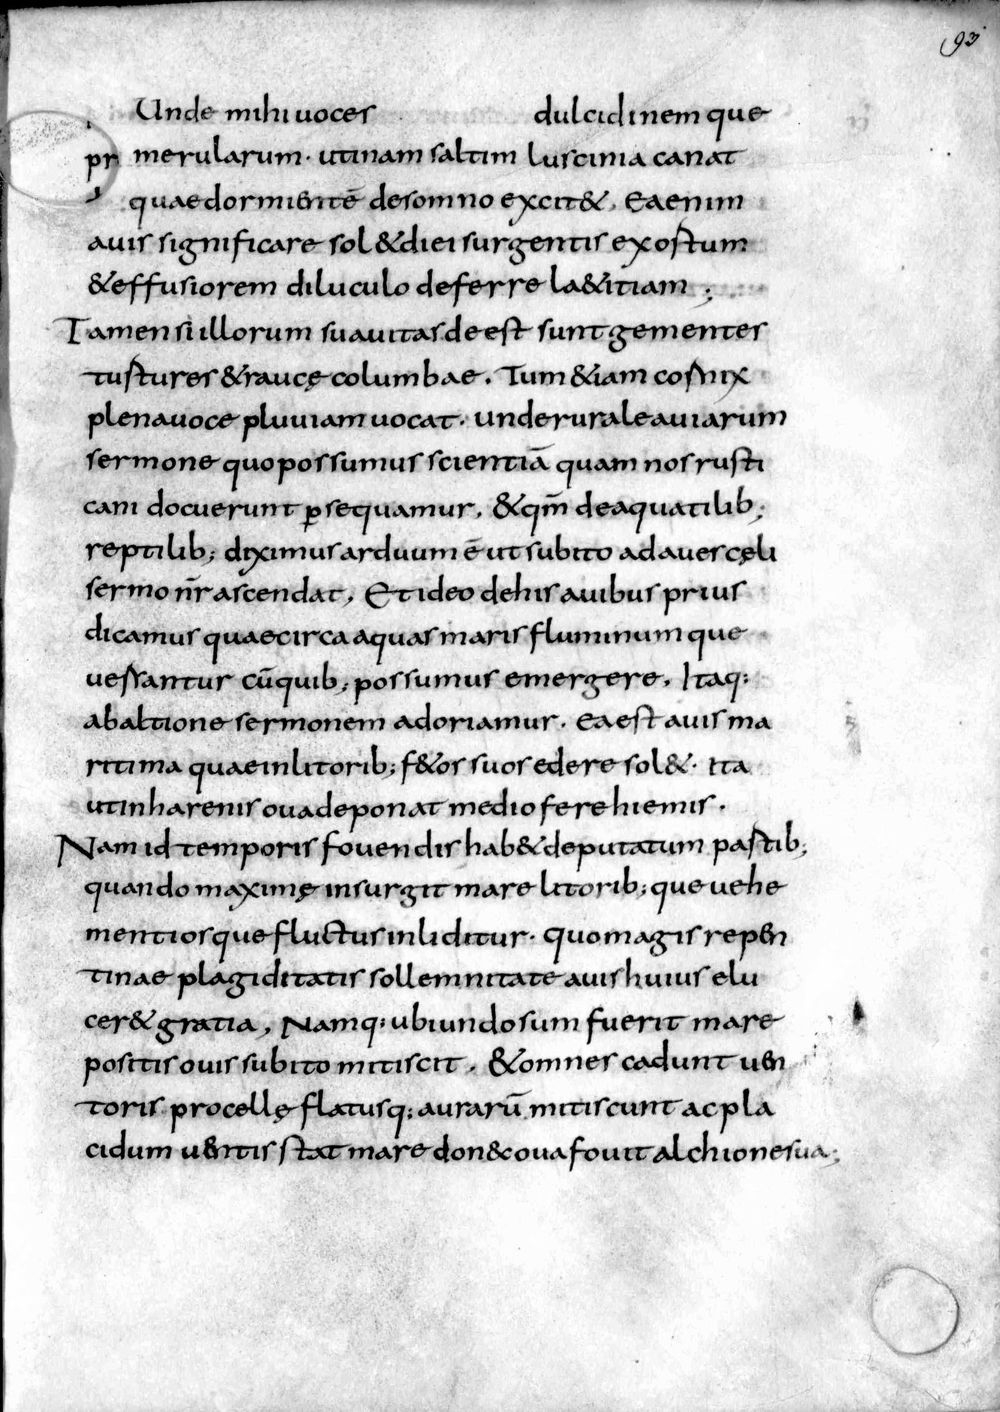 93
Unde mihi uoces dulcidinem que
pr merularum · utinam saltim luscinia canat
quae dormientē de somno excit&, Ea enim
auis significare sol& diei surgentis exortum
& effusiorem diluculo deferre la&itiam ;
Tamen si illorum suauitas deest sunt gementes
turtures & raucę columbae . Tum &iam cornix
plena uoce pluuiam uocat · unde rurale auiarum
sermone quo possumus scientiā quam nos rusti
cani docuerunt ꝑsequamur, & qm̄ de aquatilib;
reptilib; diximus arduum ē ut subito ad aues cęli
sermo nr̄ ascendat, Et ideo de his auibus prius
dicamus quae circa aquas maris fluminum que
uersantur cū quib; possumus emergere, Itaq:
ab altione sermonem adoriamur · ea est auis ma
ritima quae in litorib; f&os suos edere sol& · ita
ut in harenis oua deponat medio fere hiemis ·
Nam id temporis fouendis hab& deputatum partib;
quando maximę insurgit mare litorib; que uehe
mentiorque fluctus inliditur · quo magis repen
tinae plagiditatis sollemnitate auis huius elu
cer& gratia, Namq: ubi undosum fuerit mare
positis ouis subito mitiscit , & omnes cadunt uen
toris procellę flatusq; aurarū mitiscunt ac pla
cidum uentis stat mare don& oua fouit alchione sua ;